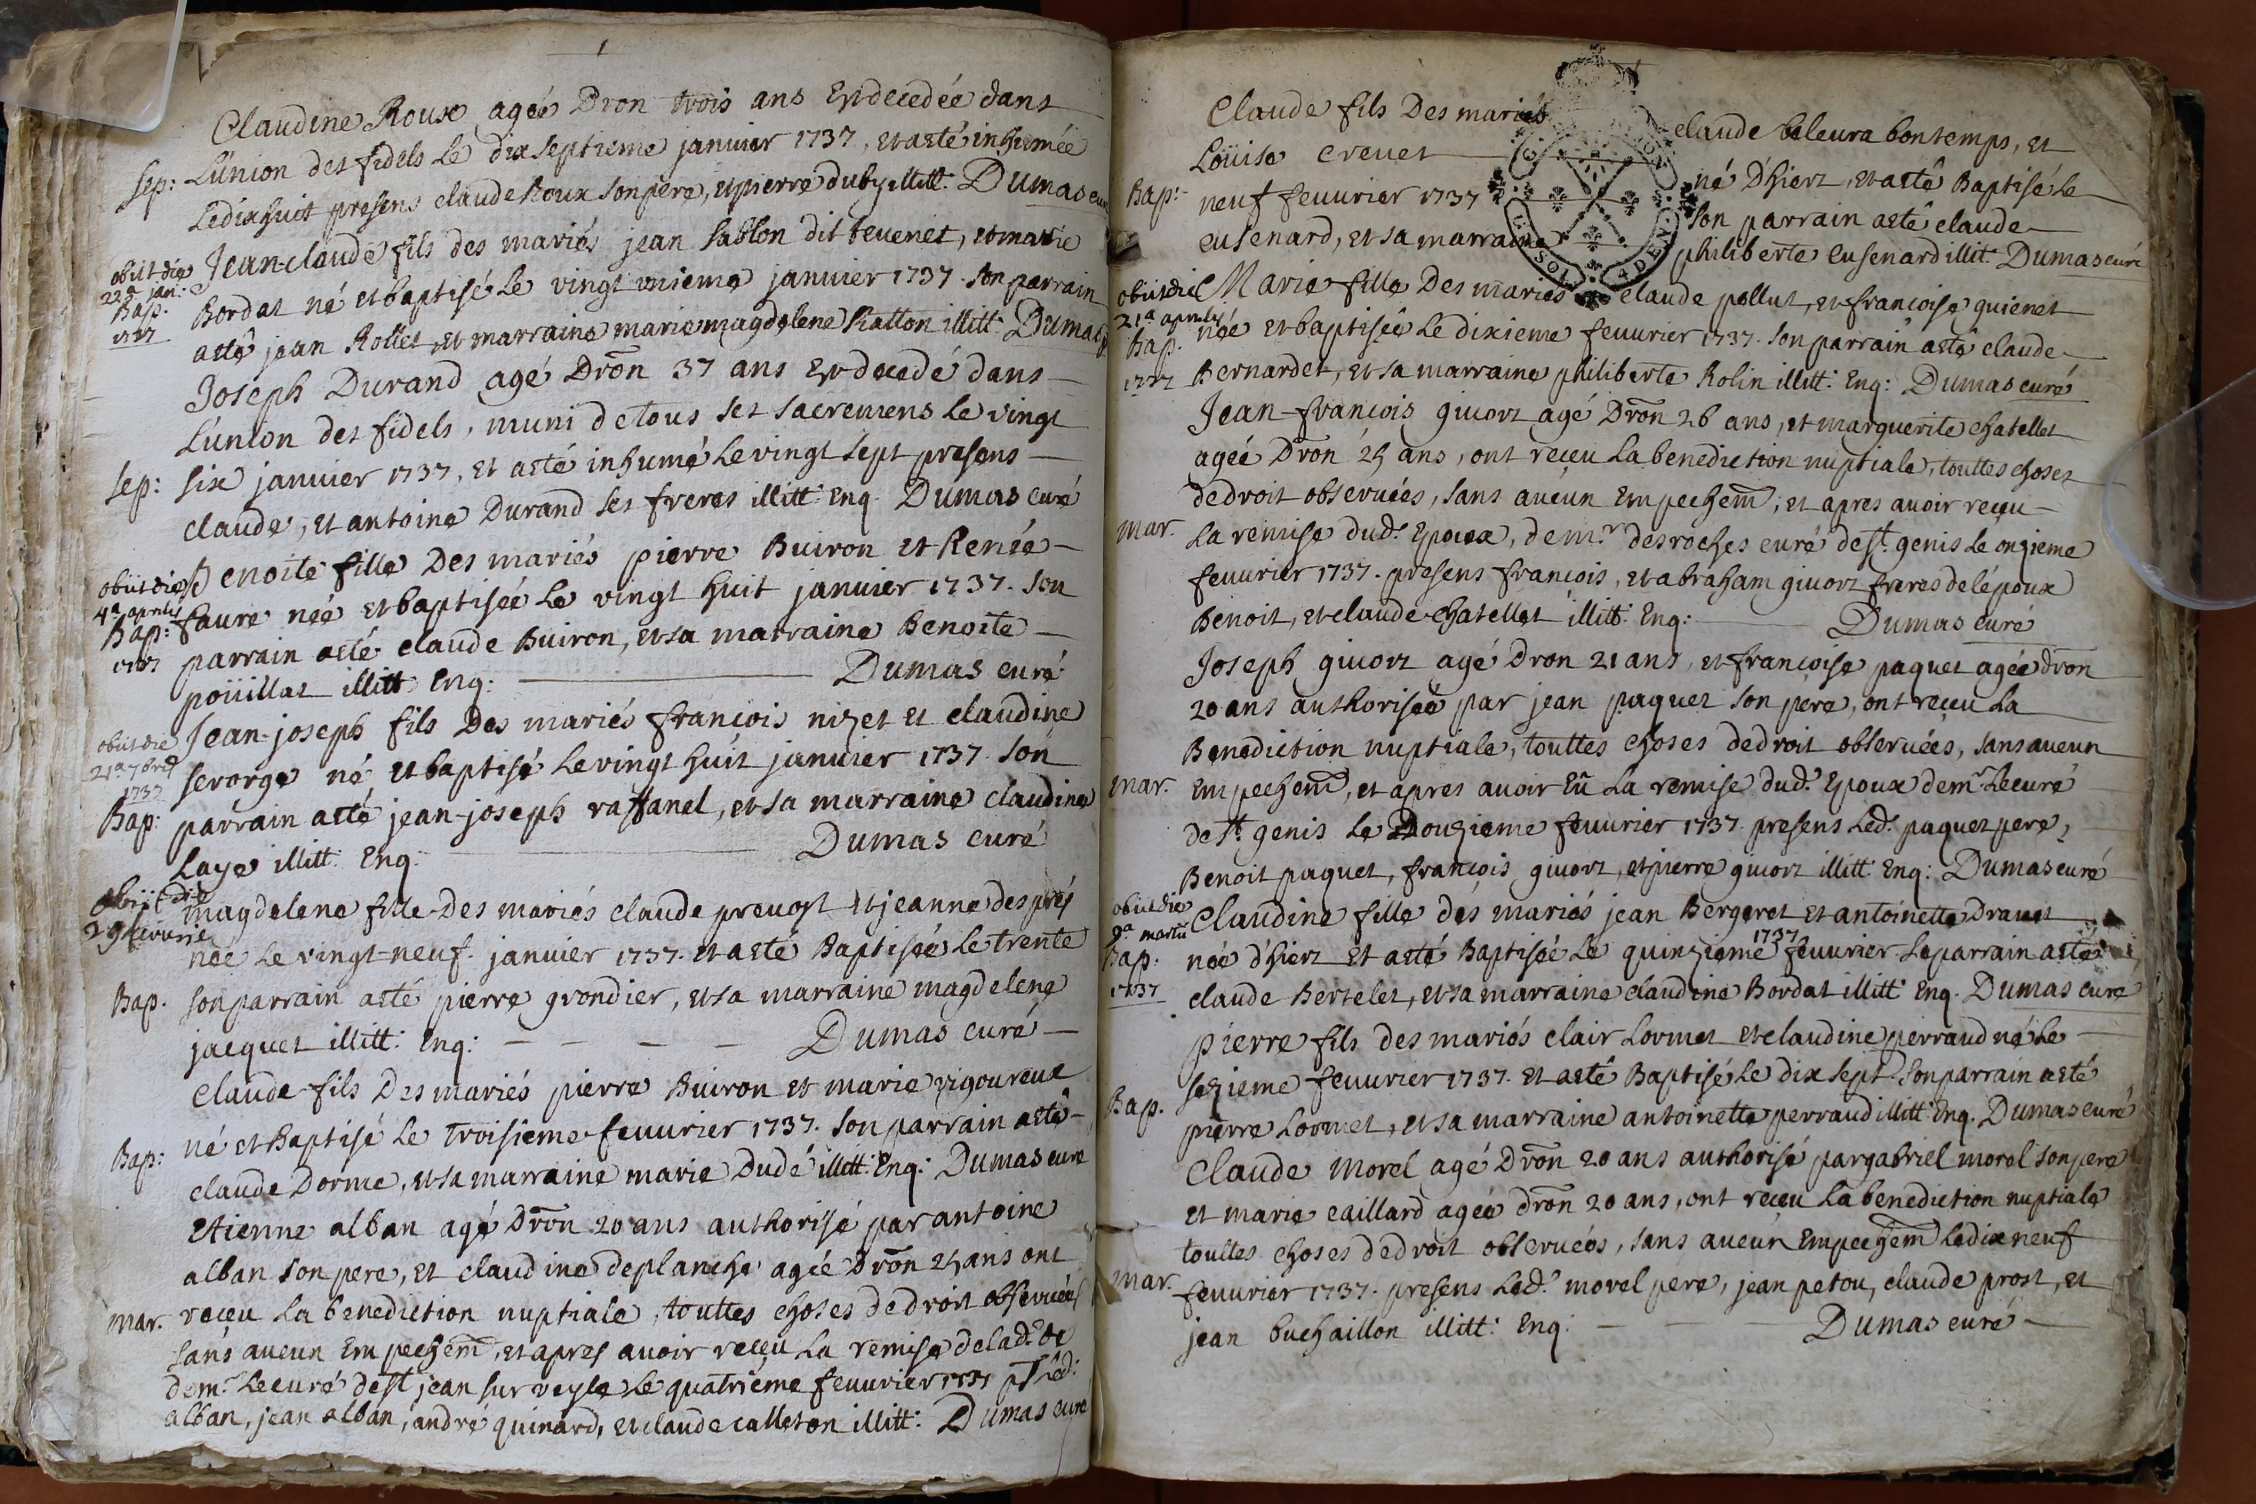 Claudine Roux agée Dron trois ans Est decedée dans
sep: L'union des fidels Le dixseptieme janvier 1737, et a esté inhumée
Le dixhuit presens claude Roux son pere, et pierre duby illitt. Dumas curé
obiit die Jean-claude fils des mariés jean sablon dit tevenet, et marie
22a jan: Bap. Bordat né et baptisé Le vingt unieme janvier 1737. son parrain
1737 a esté jean Rollet et marraine marie magdelene Ratton illitt: Dumas
Joseph Durand agé Dron 37 ans Est decedé dans
L'union des fidels, muni de tous ses sacremens Le vingt
sep: six janvier 1737, et a esté inhumé Le vingt sept presens
claude, et antoine Durand ses freres illitt: Enq. Dumas curé
obiit die Benoite fille Des mariés pierre Buiron et Renée
4a aprilis Bap: faure née et baptisée Le vingt huit janvier 1737. son
1737 parrain a esté claude Buiron, et sa marraine Benoite
poüillat illitt Enq: Dumas curé
obiit die Jean-joseph fils Des mariés francois nizet et claudine
21a 7bris 1737 serorge né et baptisé Le vingt huit janvier 1737. son
Bap: parrain a esté jean-joseph raffanel, et sa marraine claudine
Laye illitt: Enq. Dumas curé
obiit die magdelene fille Des mariés claude prevost et jeanne després
29 fevurie née Le vingt-neuf janvier 1737. et a esté Baptisée Le trente
Bap. son parrain a esté pierre grondier, et sa marraine magdelene
jacquet illitt: Enq: Dumas curé
claude fils Des mariés pierre Buiron et marie vigoureux
Bap: né et Baptisé Le troisieme feuurier 1737. son parrain a esté
claude Dorme, et sa marraine marie Dudé illitt: Enq: Dumas curé
Etienne alban agé Dron 20 ans authorisé par antoine
alban son pere, et claudine deplanche agée Dron 25 ans ont
mar. receu La benediction nuptiale, touttes choses de droit observées
sans aucun Empechem, et apres avoir receu La remise de lad.
de mr. Le curé de st jean sur veyle Le quatrieme feuurier 1737 Led:
alban, jean alban, andré quinard, et claude calleton illitt: Dumas curé
Claude fils Des mariés claude beleura bontemps, et
Loüise crevet né D'hierz, et a esté Baptisé Le
Bap: neuf feuurier 1737 son parrain a esté claude
cusenard, et sa marraine philiberte cusenard illit: Dumas curé
obiit die Marie fille Des mariés claude pollut, et francoise guienet
21a aprilis Bap. née et baptisée Le dixieme feuurier 1737. son parrain a esté claude
1737 Bernardet, et sa marraine philiberte Rolin illitt: Enq: Dumas curé
Jean-francois givorz agé Dron 26 ans, et marguerite chatellet
agée Dron 25 ans, ont reçeu La benediction nuptiale, touttes choses
de droit observées, sans aucun Empechem, et apres avoir reçeu
mar. La remise dud. Epoux, de mr. desroches curé de st. genis Le onzieme
feuurier 1737. presens francois, et abraham givorz freres de l'époux
Benoit, et claude chatellet illitt: Enq: Dumas curé
Joseph givorz agé Dron 21 ans, et françoise paquet agée dron
20 ans authorisée par jean paquet son pere, ont reçeu La
Benediction nuptiale, touttes choses de droit observées, sans aucun
mar. Empechem, et apres avoir Eu La remise dud. Epoux de mr Le curé
de st. genis Le Douzieme feuurier 1737. presens Led. paquet pere,
Benoit paquet, françois givorz, et pierre givorz illitt: Enq: Dumas curé
obiit die Claudine fille des mariés jean Bergeret et antoinette Dravet
9a martii née d'hierz et a esté Baptisée Le quinzieme feuurier 1737 Le parrain a esté
Bap: 1737 claude Bertelet, et sa marraine claudine Bordat illitt: Enq. Dumas curé
pierre fils des mariés clair Lormet et claudine perraud né Le
Bap. sezieme feuurier 1737. et a esté Baptisé Le dix sept son parrain a esté
pierre Lormet, et sa marraine antoinette perraud illitt: Enq. Dumas curé
Claude Morel agé Dron 20 ans authorisé par gabriel morel son pere
et marie caillard agée dron 20 ans, ont reçeu La benediction nuptiale
touttes choses de droit observées, sans aucun Empechem Le dixneuf
mar. feuurier 1737. presens Led. morel pere, jean petou, claude prost, et
jean buchaillon illitt: Enq: Dumas curé